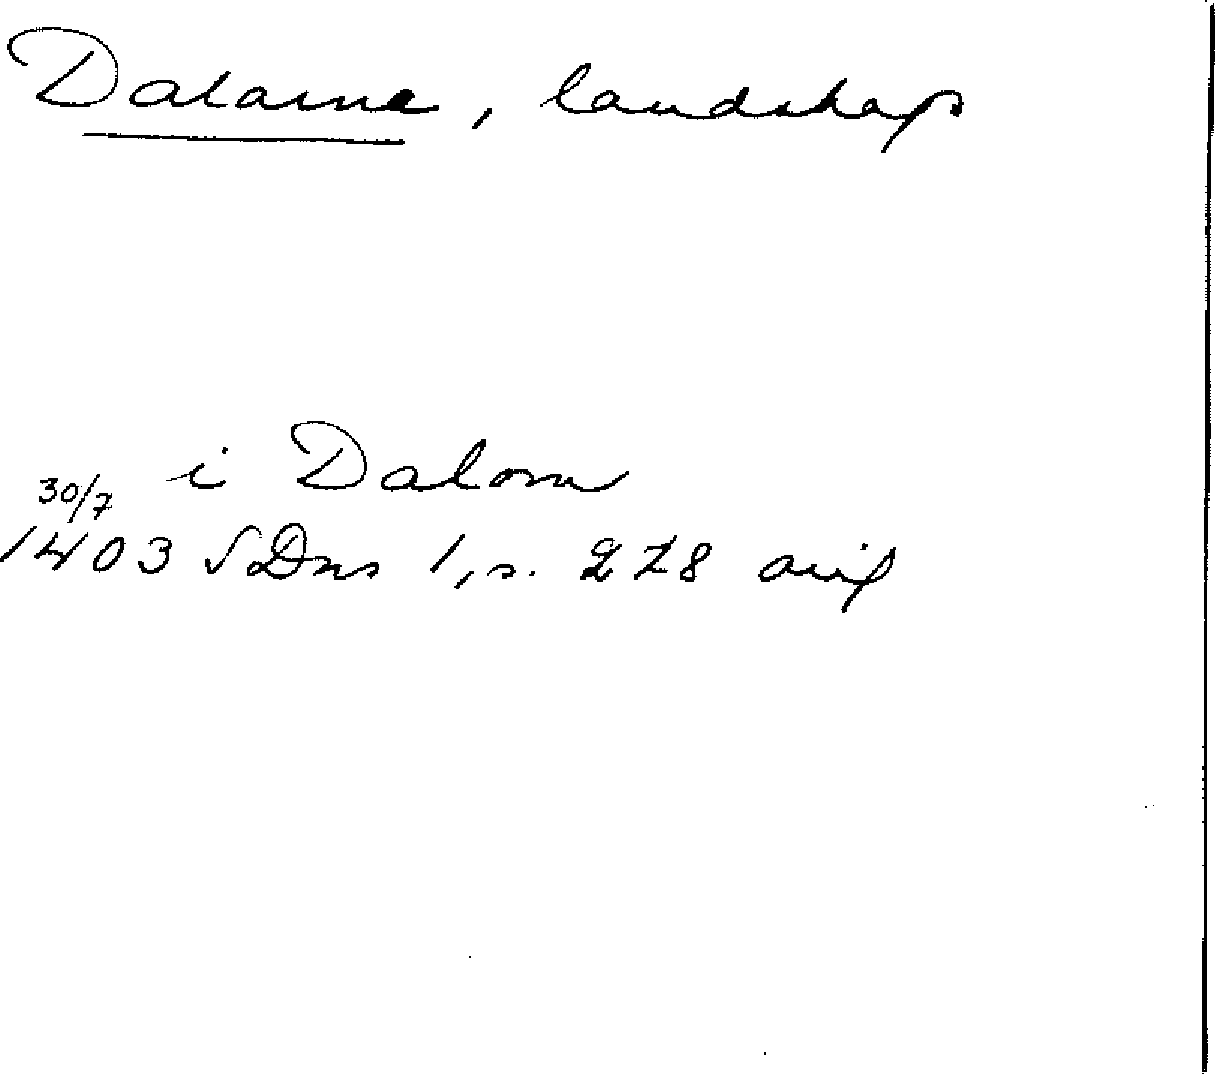 Dalarna, landskap
i Dalom
30/7
1403 SDns 1, s. 278 avs